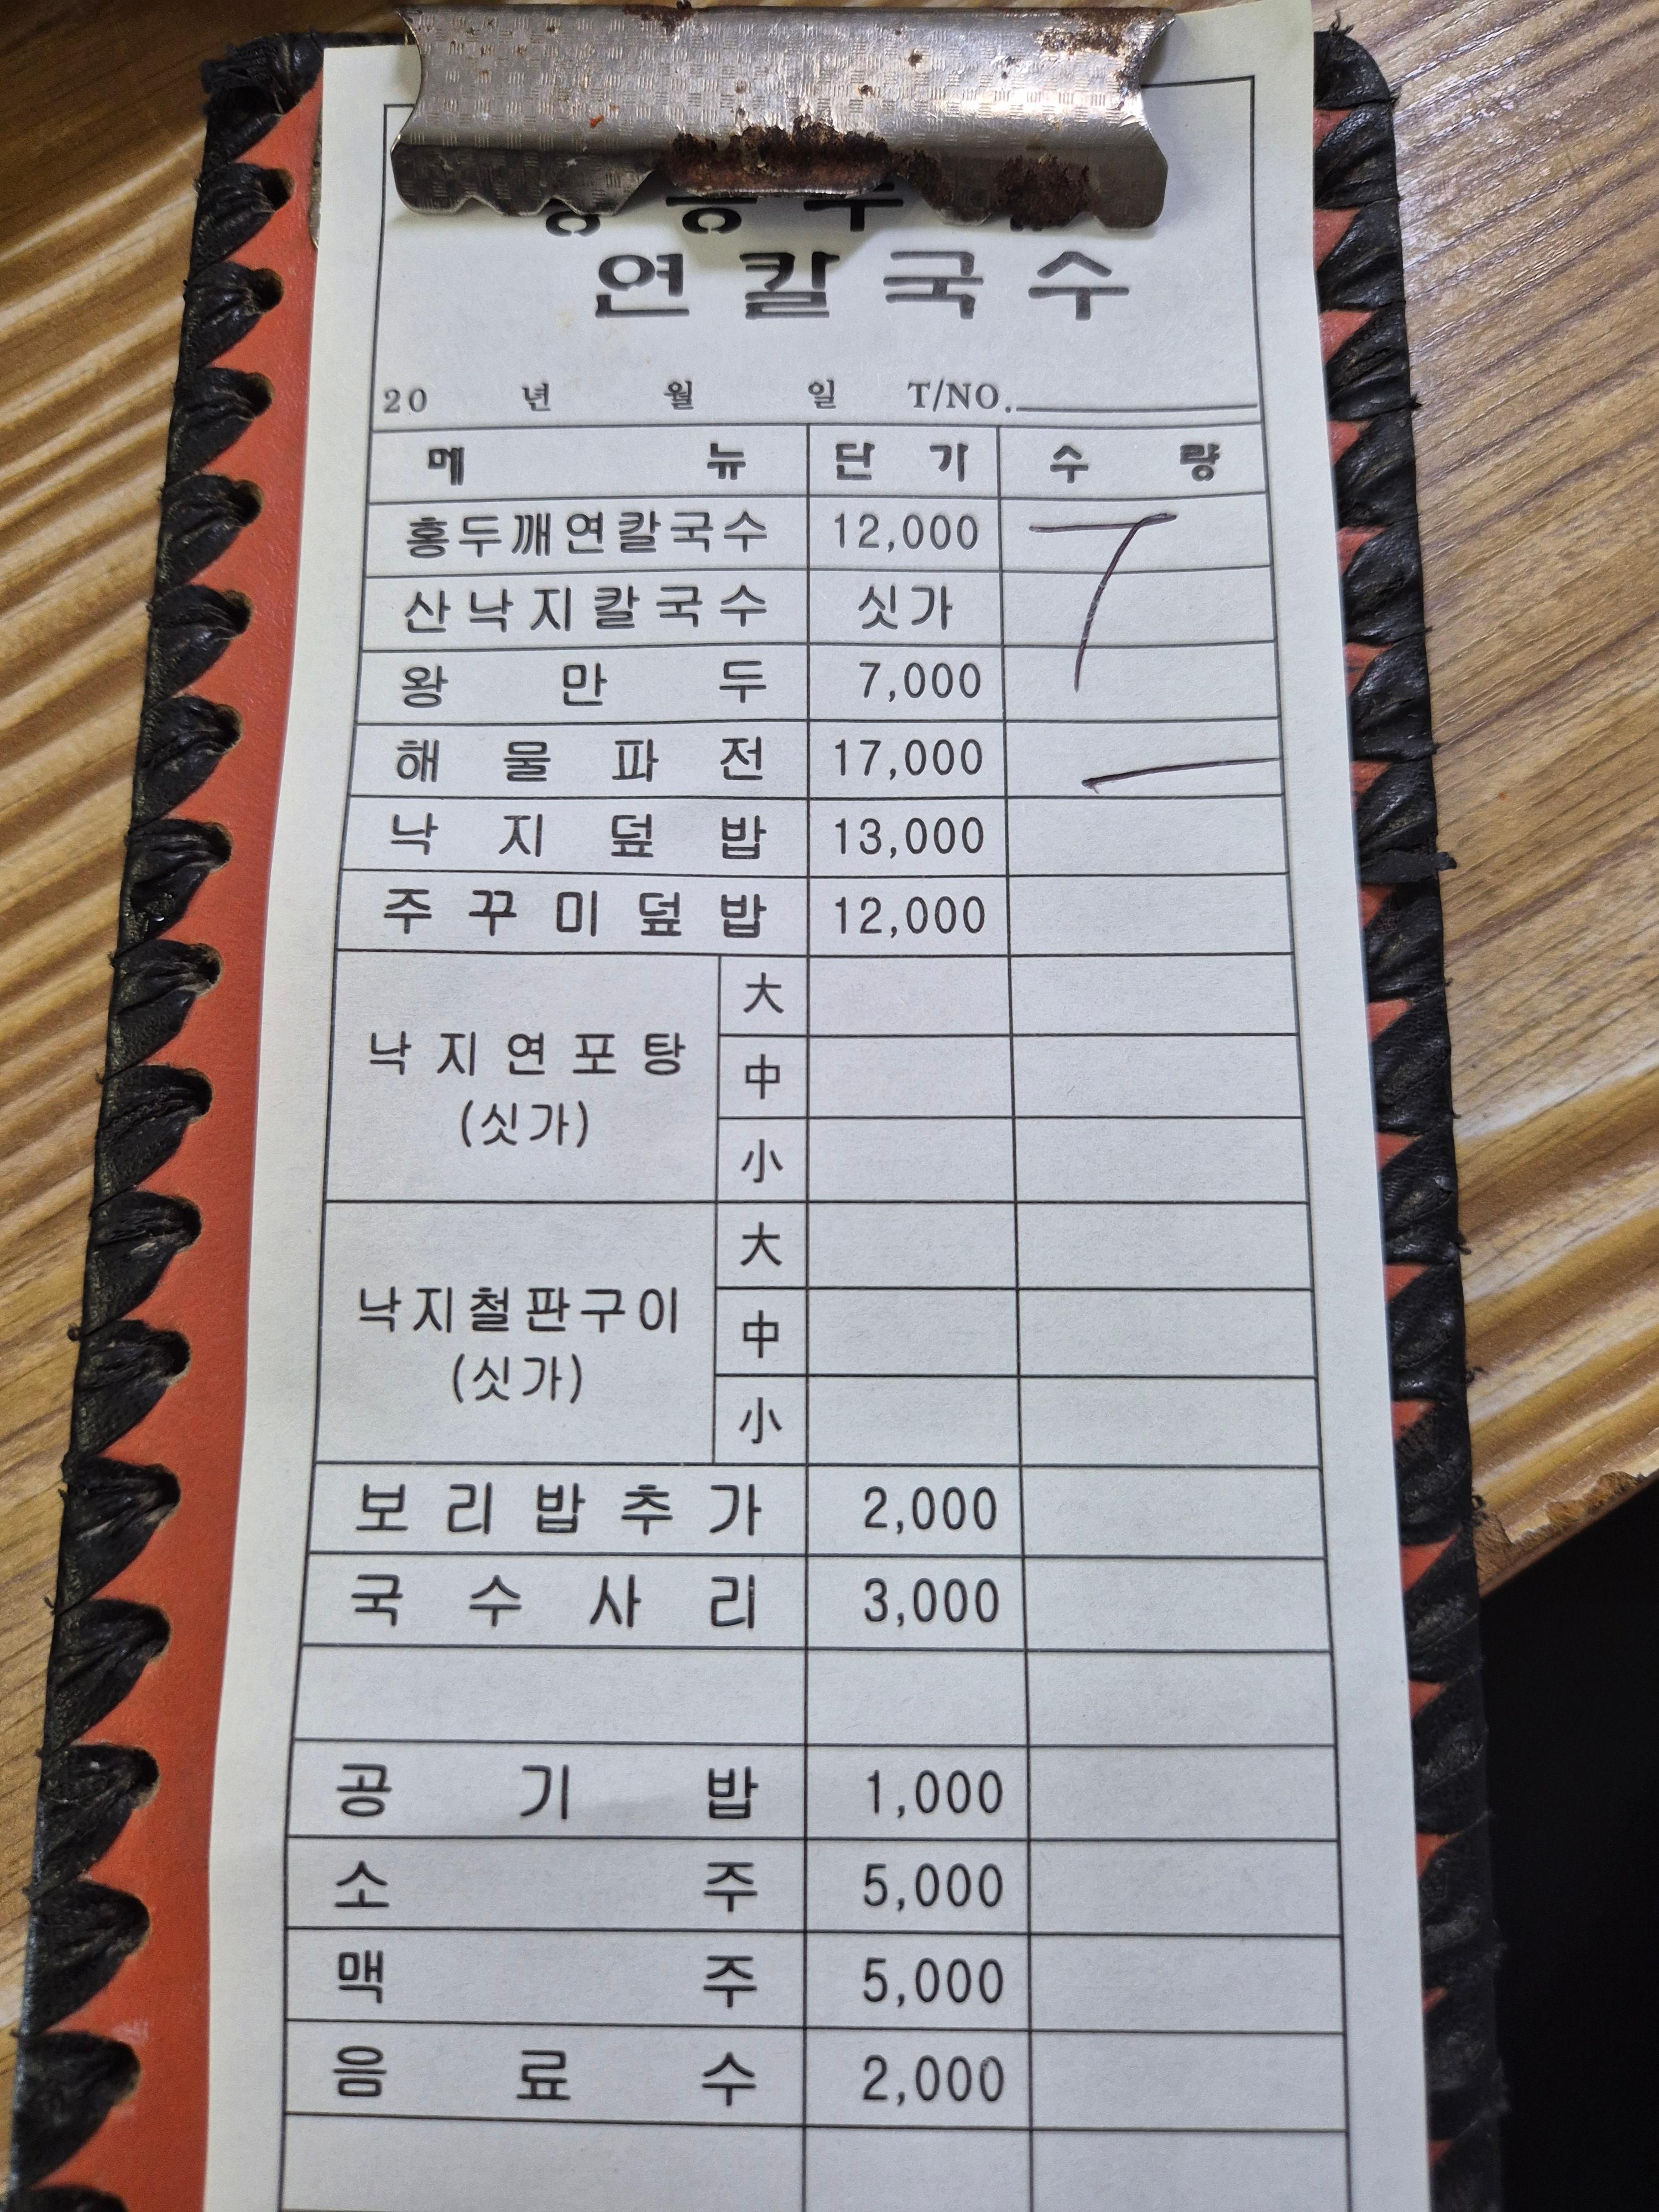 연칼국수
20 년 월 일 T/NO.
메뉴 단가 수량
홍두깨연칼국수 12,000
산낙지칼국수 싯가
왕만두 7,000
해물파전 17,000
낙지덮밥 13,000
주꾸미덮밥 12,000
낙지연포탕 (싯가) 大
中
小
낙지철판구이 (싯가) 大
中
小
보리밥추가 2,000
국수사리 3,000
공기밥 1,000
소주 5,000
맥주 5,000
음료수 2,000